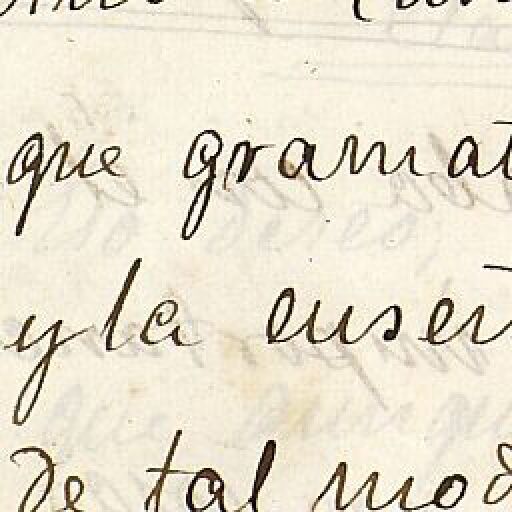 que gramat
y la enseñ
de tal mod